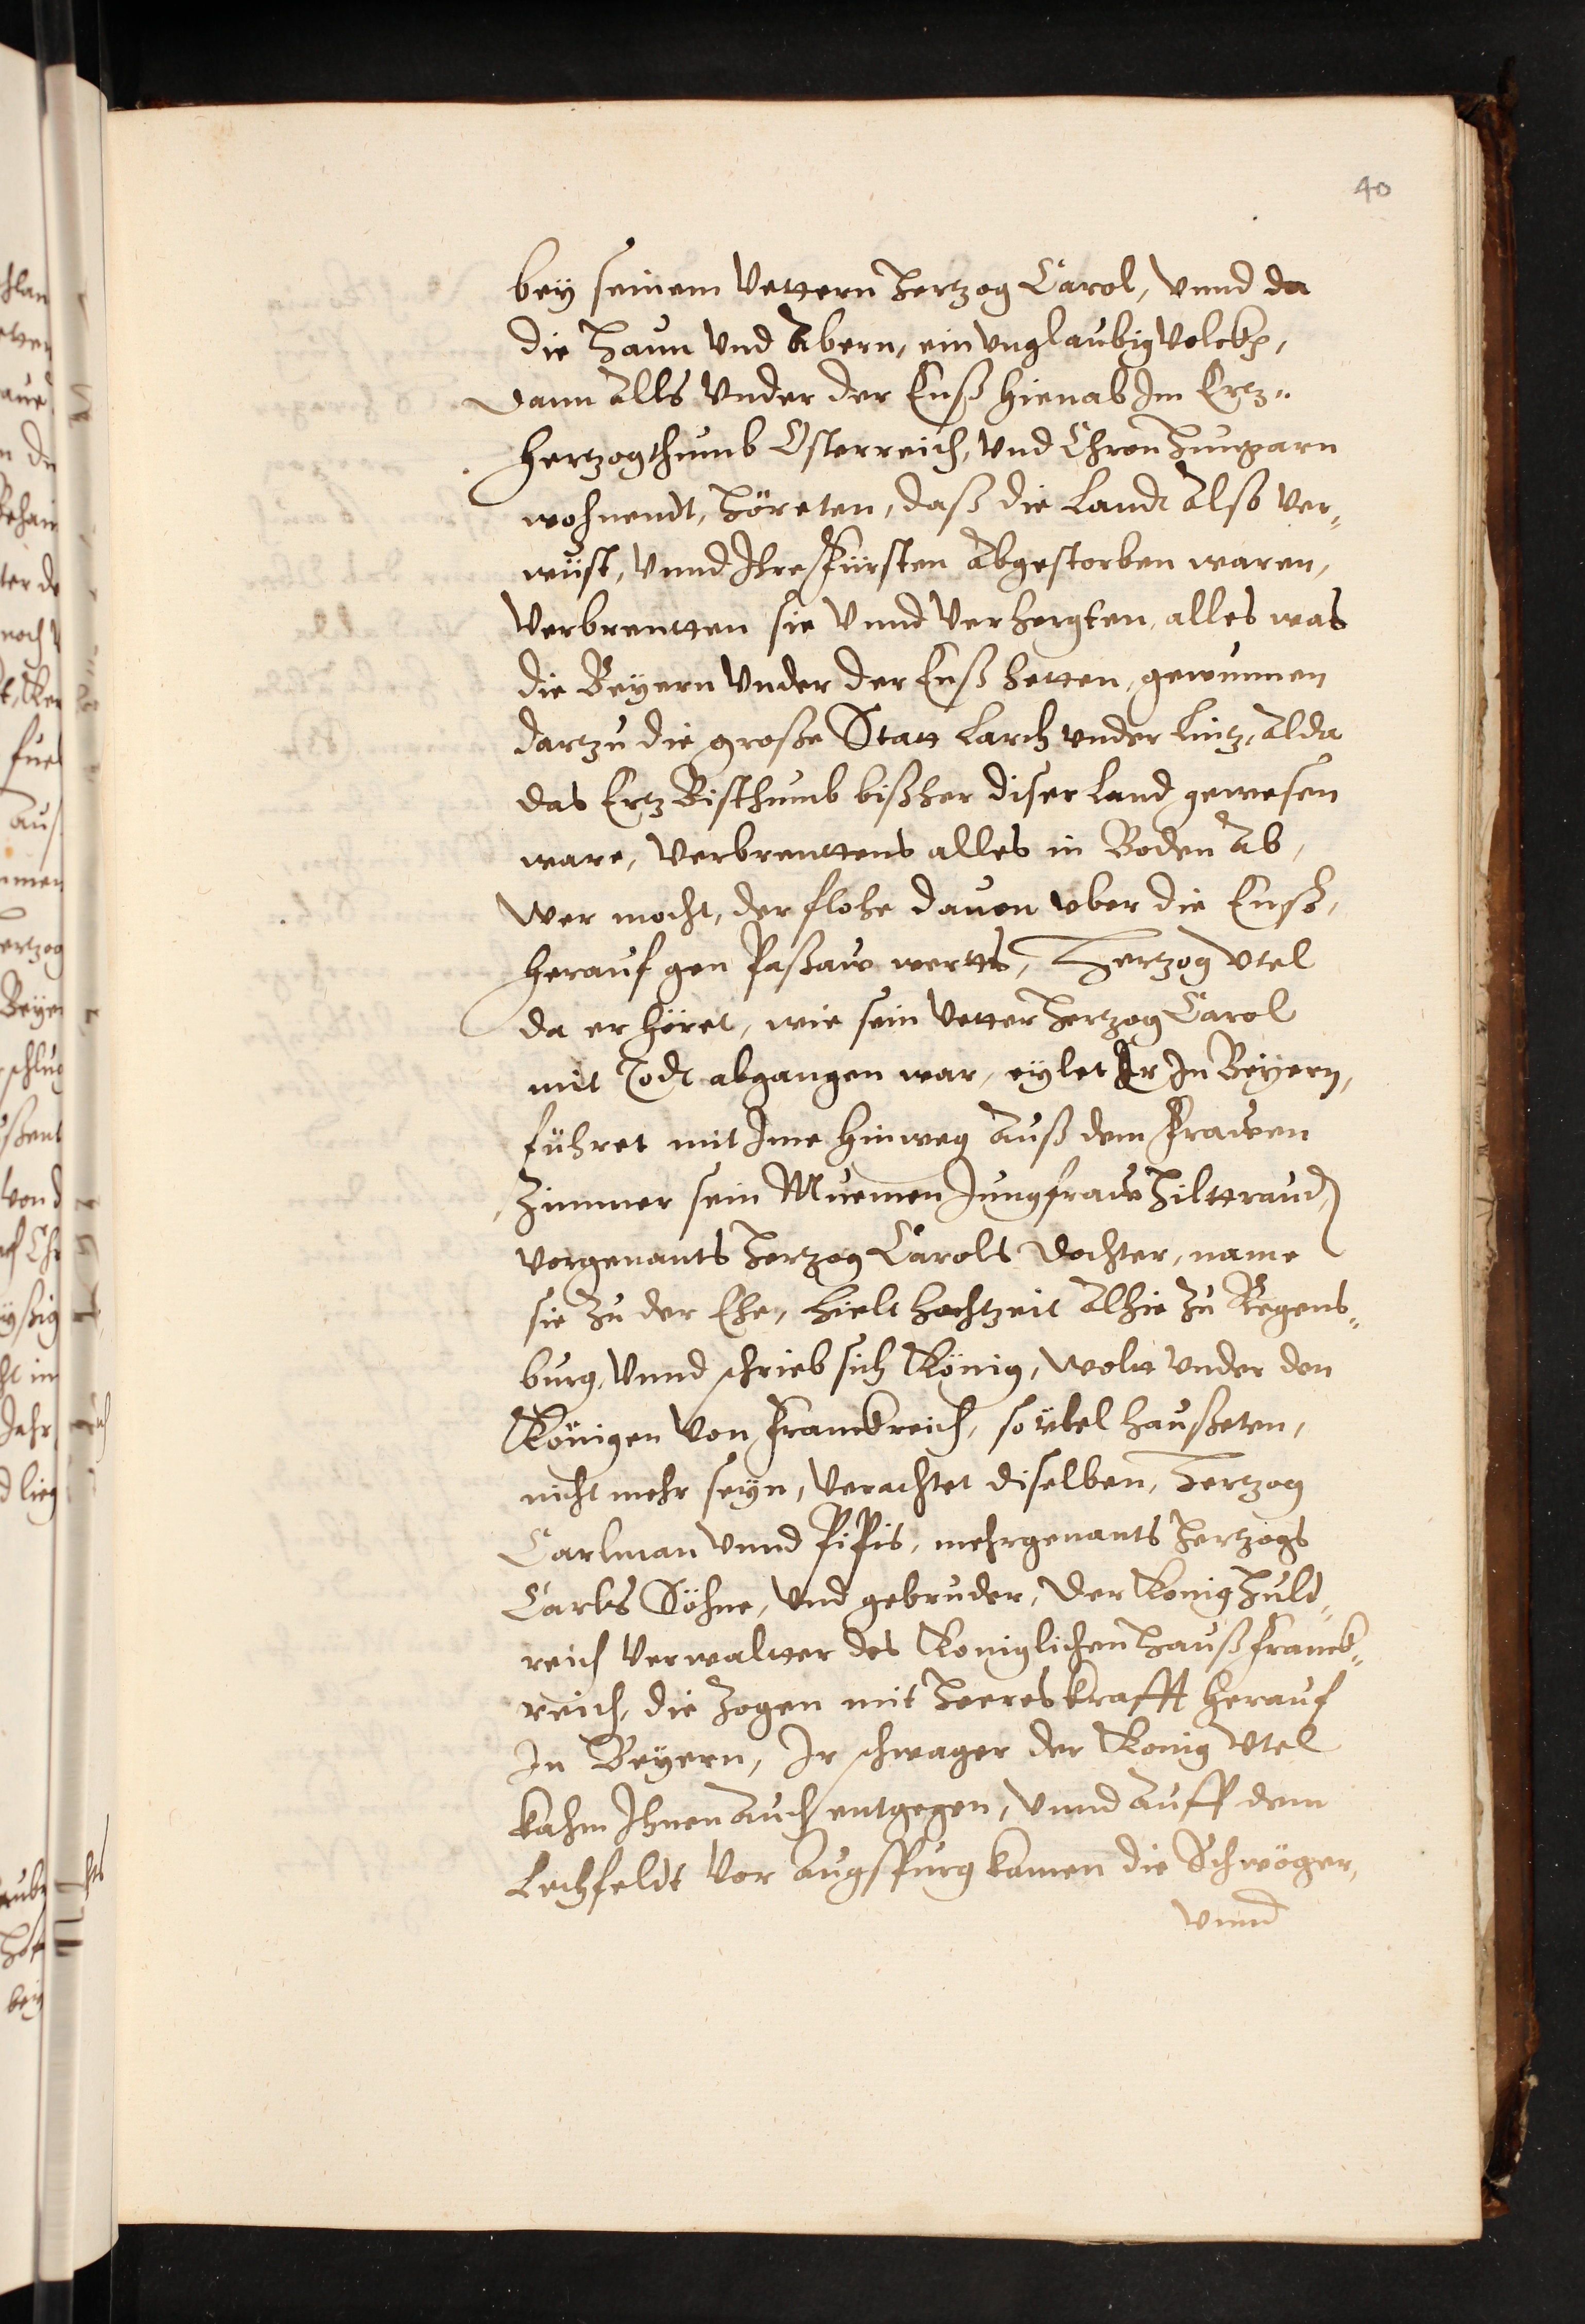 40
bey seinem Vettern Hertzog Carol, vnnd da
die Haun vnd Abern, ein vnglaubig volckh,
dann Alls vnder der Enß hienab Im Ertz„
hertzogthumb Osterreich, vnd Chron Hungarn
wohnendt, höreten, daß die Landt Also ver„
wüst, vnnd Ihre Fürsten Abgestorben waren,
verbrentten sie vnnd verhergten, alles was
die Beyern vnder der Enß hetten, gewunnen
dartzu die große Statt Larch vnder Lintz, Alda
das Ertz Bisthumb bißher diser Land gewesen
ware, verbrenttens alles in Boden Ab,
Wer mocht, der flohe dauon vber die Enß,
herauf gen Paßaw wertts, Hertzog Vtel
da er höret, wie sein Vetter Hertzog Carol
mit Todt abgangen war, eylet Er In Beyern,
führet mit Ime hinweg Auß dem Frawen
Zimmer sein Muemen Jungfraw Hilttraud,
vorgenants Hertzog Carols dochter, name
sie zu der Ehe, hielt hochtzeit Alhie zu Regens„
burg, vnnd schrieb sich König, wolt vnder den
Königen von Franckreich, so übel haußeten,
nicht mehr seyn, verachtet diselben, Hertzog
Carlman vnnd Pipis, mehrgenants Hertzogs
Carls Söhne, vnd gebruder, der König Huld„
reich verwaltter des Königlichen Hauß Franck„
reich, die zogen mit Heereskrafft herauf
In Beyern, Ir schwager der König Vtel
kahm Ihnen Auch entgegen, vnnd Auff dem
Lechfeldt vor Augspurg kamen die Schwöger,
vnnd